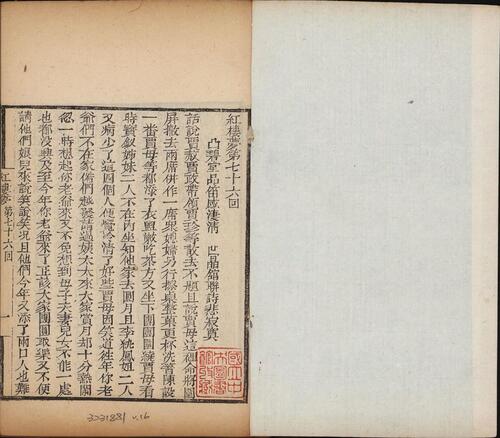 紅樓夢第七十六回
凸碧堂品笛感淒清 凹晶館聯詩悲寂寞
話說賈赦賈政帶領賈珍等散去不題且說賈母這裡命將圍
屏撤去兩席併作一席衆媳婦另行擦桌整菓更杯洗箸陳設
一番賈母等都添了衣盥漱吃茶方又坐下團團圍繞賈母看
時寶釵姊妹二人不在內坐知他家去圓月且李紈鳳姐二人
又病少了這四個人便覺冷清了好些賈母因笑道往年你老
爺們不在家偺們越發請過姨太太來大家賞月却十分熱鬧
忽一時想起你老爺來又不免想到母子夫妻兒女不能一處
也都沒興及至今年你老爺來了正該大家團圓取樂又不便
請他們娘兒來說笑說笑況且他們今年又添了兩口人也難
紅樓夢 第七十六回 一
3231881 v.16